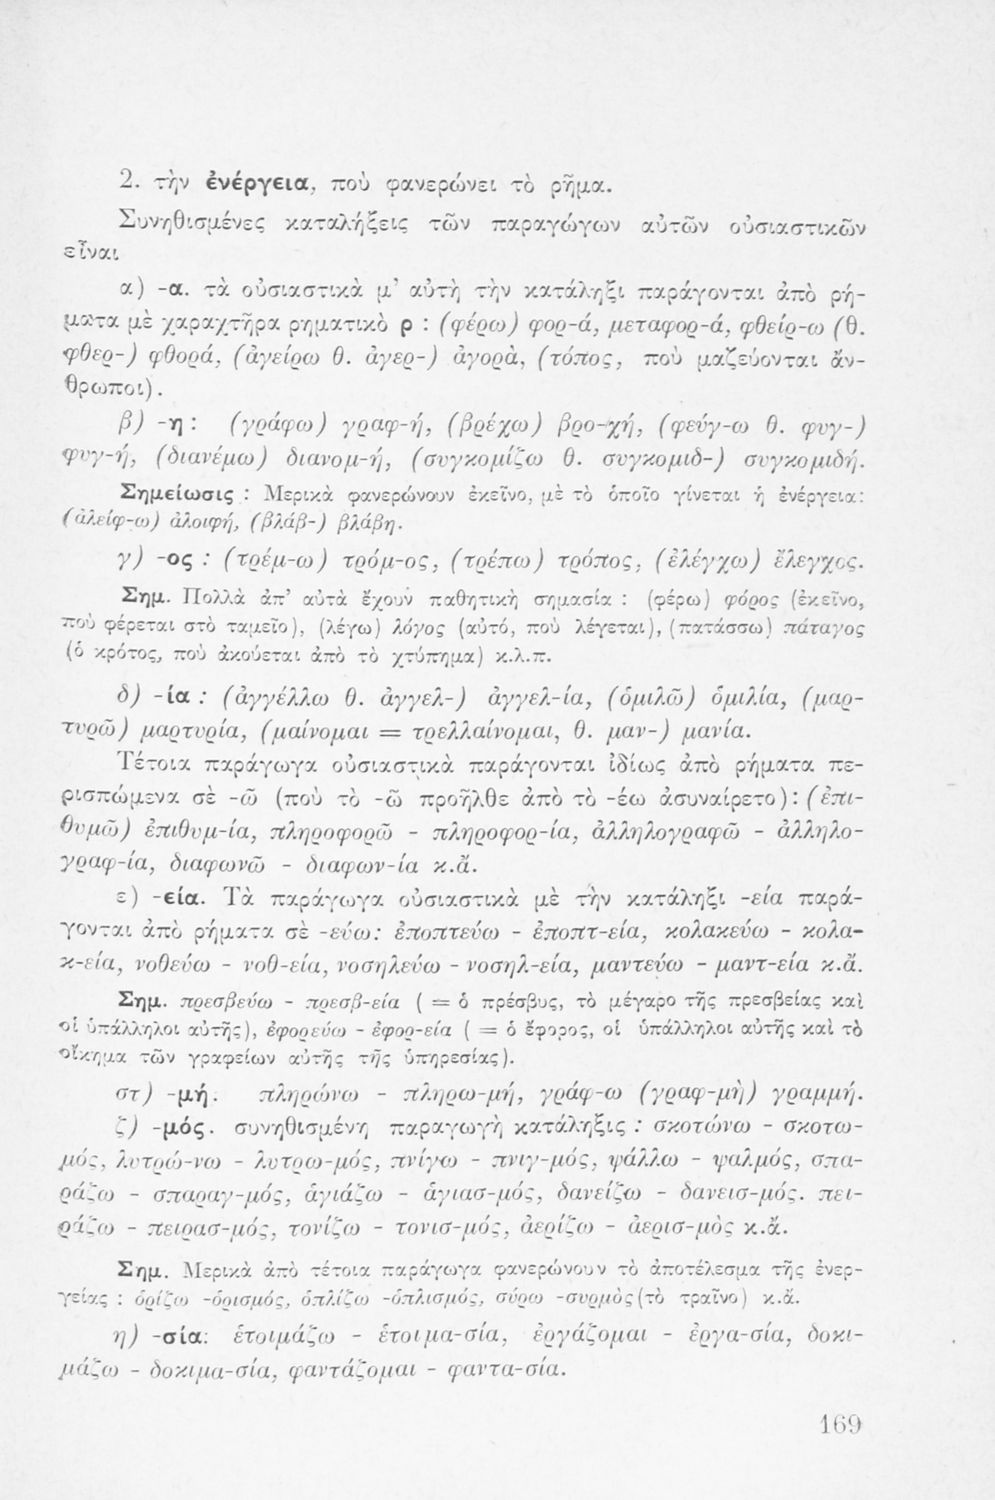 2. τὴν ἐνέργεια, ποὺ φανερώνει τὸ ρῆμα.
Συνηθισμένες καταλήξεις τῶν παραγώγων αὐτῶν οὐσιαστικῶν
εἶναι
α) -α. τὰ οὐσιαστικὰ μ' αὐτὴ τὴν κατάληξι παράγονται ἀπὸ ρή-
ματα μὲ χαραχτῆρα ρηματικὸ ρ : (φέρω) φορ-ά, μεταφορ-ά, φθείρ-ω (θ.
φθερ-) φθορά, (ἀγείρω θ. ἀγερ-) ἀγορὰ, (τόπος, ποὺ μαζεύονται ἄν-
θρωποι).
β) -η : (γράφω) γραφ-ή, (βρέχω) βρο-χή, (φεύγ-ω θ. φυγ-)
φυγ-ή, (διανέμω) διανομ-ή, (συγκομίζω θ. συγκομιδ-) συγκομιδή.
Σημείωσις : Μερικὰ φανερώνουν ἐκεῖνο, μὲ τὸ ὁποῖο γίνεται ἡ ἐνέργεια:
(ἀλείφ-ω) ἀλοιφή, (βλάβ-) βλάβη.
γ) -ος : (τρέμ-ω) τρόμ-ος, (τρέπω) τρόπος, (ἐλέγχω) ἔλεγχος.
Σημ. Πολλὰ ἀπ' αὐτὰ ἔχουν παθητικὴ σημασία : (φέρω) φόρος (ἐκεῖνο,
ποὺ φέρεται στὸ ταμεῖο), (λέγω) λόγος (αὐτό, ποὺ λέγεται), (πατάσσω) πάταγος
(ὁ κρότος, ποὺ ἀκούεται ἀπὸ τὸ χτύπημα) κ.λ.π.
δ) -ία : (ἀγγέλλω θ. ἀγγελ-) ἀγγελ-ία, (ὁμιλῶ) ὁμιλία, (μαρ-
τυρῶ) μαρτυρία, (μαίνομαι = τρελλαίνομαι, θ. μαν-) μανία.
Τέτοια παράγωγα οὐσιαστικὰ παράγονται ἰδίως ἀπὸ ρήματα πε-
ρισπώμενα σὲ -ῶ (ποὺ τὸ -ῶ προῆλθε ἀπὸ τὸ -έω ἀσυναίρετο): (ἐπι-
θυμῶ) ἐπιθυμ-ία, πληροφορῶ - πληροφορ-ία, ἀλληλογραφῶ - ἀλληλο-
γραφ-ία, διαφωνῶ - διαφων-ία κ.ἄ.
ε) -εία. Τὰ παράγωγα οὐσιαστικὰ μὲ τὴν κατάληξι -εία παρά-
γονται ἀπὸ ρήματα σὲ -εύω: ἐποπτεύω - ἐποπτ-εία, κολακεύω - κολα-
κ-εία, νοθεύω - νοθ-εία, νοσηλεύω - νοσηλ-εία, μαντεύω - μαντ-εία κ.ἄ.
Σημ. πρεσβεύω - πρεσβ-εία ( = ὁ πρέσβυς, τὸ μέγαρο τῆς πρεσβείας καὶ
οἱ ὑπάλληλοι αὐτῆς), ἐφορεύω - ἐφορ-εία ( = ὁ ἔφορος, οἱ ὑπάλληλοι αὐτῆς καὶ τὸ
οἴκημα τῶν γραφείων αὐτῆς τῆς ὑπηρεσίας).
στ) -μή. πληρώνω - πληρω-μή, γράφ-ω (γραφ-μὴ) γραμμή.
ζ) -μός. συνηθισμένη παραγωγὴ κατάληξις : σκοτώνω - σκοτω-
μός, λυτρώ-νω - λυτρω-μός, πνίγω - πνιγ-μός, ψάλλω - ψαλμός, σπα-
ράζω - σπαραγ-μός, ἁγιάζω - ἁγιασ-μός, δανείζω - δανεισ-μός. πει-
ράζω - πειρασ-μός, τονίζω - τονισ-μός, ἀερίζω - ἀερισ-μὸς κ.ἄ.
Σημ. Μερικὰ ἀπὸ τέτοια παράγωγα φανερώνουν τὸ ἀποτέλεσμα τῆς ἐνερ-
γείας : ὁρίζω -ὁρισμός, ὁπλίζω -ὁπλισμός, σύρω -συρμὸς (τὸ τραῖνο) κ.ἄ.
η) -σία: ἑτοιμάζω - ἑτοιμα-σία, ἐργάζομαι - ἐργα-σία, δοκι-
μάζω - δοκιμα-σία, φαντάζομαι - φαντα-σία.
169